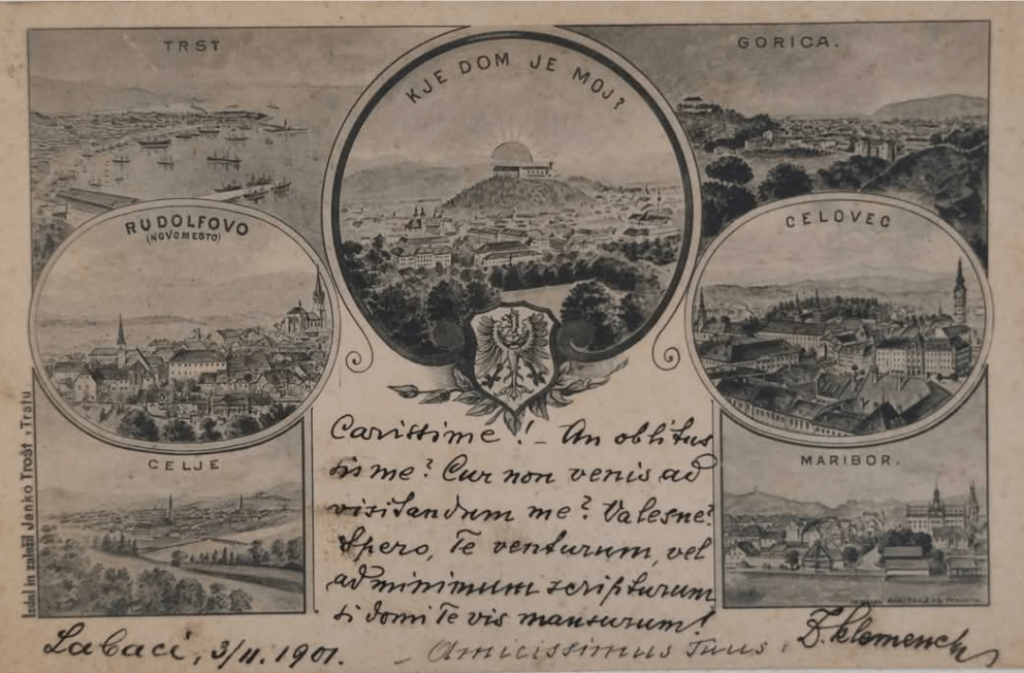 TRST
KJE DOM JE MOJ?
GORICA.
RUDOLFOVO
(NOVOMESTO)
CELOVEC
CELJE
MARIBOR.
Izdal in založil Janko Trošt v Trstu
Carissime! – An oblitus
sis me? Cur non venis ad
visitandum me? Valesne?
Spero, Te venturum, vel
ad minimum scripturum
si domi Te vis mansurum!
Labaci, 3/11. 1901.
– Amicissimus Tuus,
Klemench